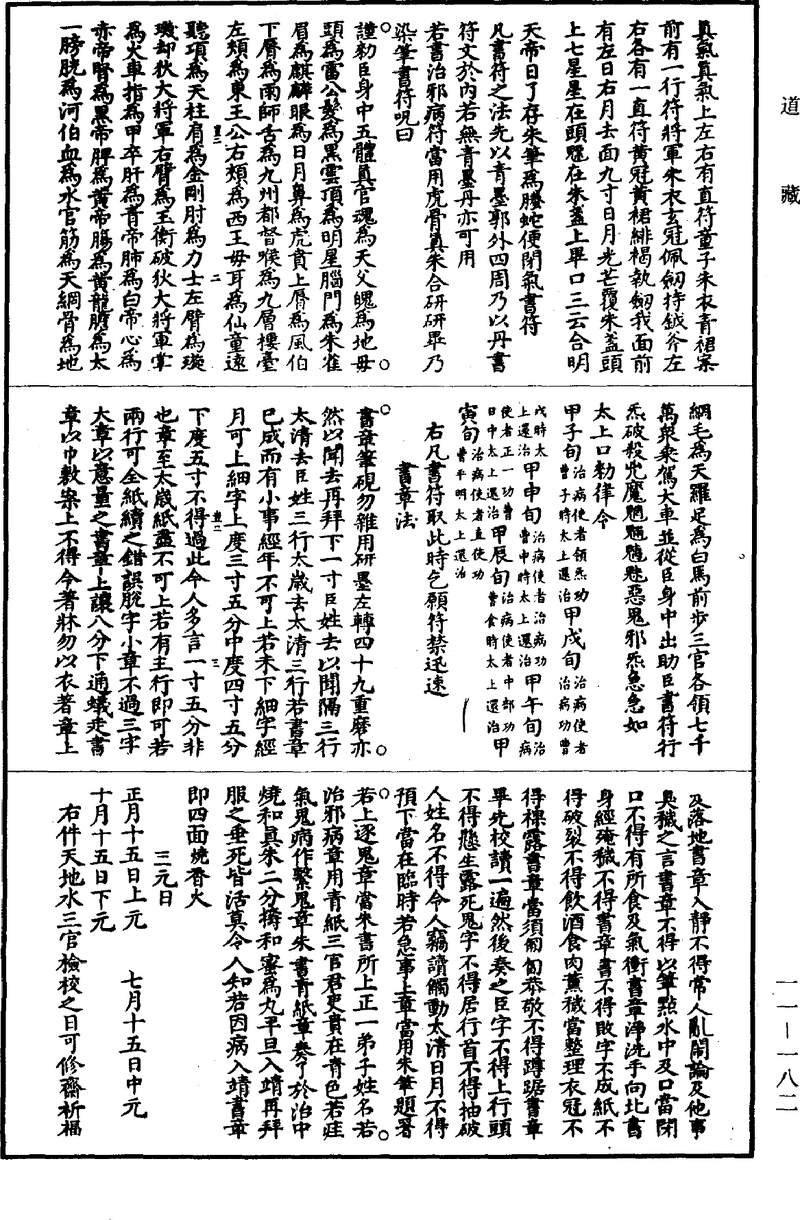 道藏
真氣真氣上左右有直符童子朱衣青裙案
前有一行符將軍朱衣玄冠佩劒持鉞斧左
右各有一直符黃冠黃裙緋褐執劒我面前
有左日右月去面九寸日月光芒覆朱盞頭
上七星星在頭魁在朱盞上畢口三云合明
天帝日了存朱筆為螣蛇便閉氣書符
凡書符之法先以青墨郭外四周乃以丹書
符文於內若無青墨丹亦可用
若書治邪病符當用虎骨真朱合研研畢乃
染筆書符呪曰
謹勑臣身中五體真官魂為天父魄為地母
頭為雷公髮為黑雲頂為明星腦門為朱雀
眉為麒麟眼為日月鼻為虎賁上脣為風伯
下脣為雨師舌為九州都督喉為九層樓臺
左頰為東王公右頰為西王母耳為仙童速
聽項為天柱肩為金剛肘為力士左臂為璇
璣却狄大將軍右臂為玉衡破狄大將軍掌
為火車指為甲卒肝為青帝肺為白帝心為
赤帝腎為黑帝脾為黃帝腸為黃龍膽為太
一膀胱為河伯血為水官筋為天綱骨為地
綱毛為天羅足為白馬前步三官各領七千
萬眾乘駕大車並從臣身中出助臣書符行
炁破殺兇魔魍魎魑魅惡鬼邪炁急急如
太上口勑律令
甲子旬治病使者領炁功曹子時太上還治甲戌旬治病使者治病功曹
戌時太上還治甲申旬治病使者治病功曹申時太上還治甲午旬治病
使者正一功曹日中太上還治甲辰旬治病使者中部功曹食時太上還治甲
寅旬治病使者直使功曹平明太上還治
右凡書符取此時乞願符禁迅速
書章法
書章筆硯勿雜用研墨左轉四十九重磨亦
然以聞去再拜下一寸臣姓去以聞隔三行
太清去臣姓三行太歲去太清三行若書章
已成而有小事經年不可上若未下細字經
月可上細字上度三寸五分中度四寸五分
下度五寸不得過此今人多言一寸五分非
也章至太歲紙盡不可上若有主行即可若
兩行可全紙續之錯誤脫字小章不過三字
大章以意量之書章上讓八分下通蟻走書
章以巾敷案上不得令著牀勿以衣著章上
及落地書章入靜不得常人亂鬧論及他事
臭穢之言書章不得以筆點水中及口當閉
口不得有所食及氣衝書章淨洗手向北書
身經殗穢不得書章書不得敗字不成紙不
得破裂不得飲酒食肉薰穢當整理衣冠不
得裸露書章當須匍匐恭敬不得蹲踞書章
畢先校讀一遍然後奏之臣字不得上行頭
不得懸生露死鬼字不得居行首不得抽破
人姓名不得令人竊讀觸動太清日月不得
預下當在臨時若急事上章當用朱筆題署
若上逐鬼章當朱書所上正一弟子姓名若
治邪病章用青紙三官君吏貴在青色若疰
氣鬼病作繫鬼章朱書青紙章奏了於治中
燒和真朱二分擣和蜜為丸平旦入靖再拜
服之垂死皆活莫令人知若因病入靖書章
即四面燒香火
三元日
正月十五日上元　七月十五日中元
十月十五日下元
右件天地水三官檢校之日可修齋祈福
一一—一八二